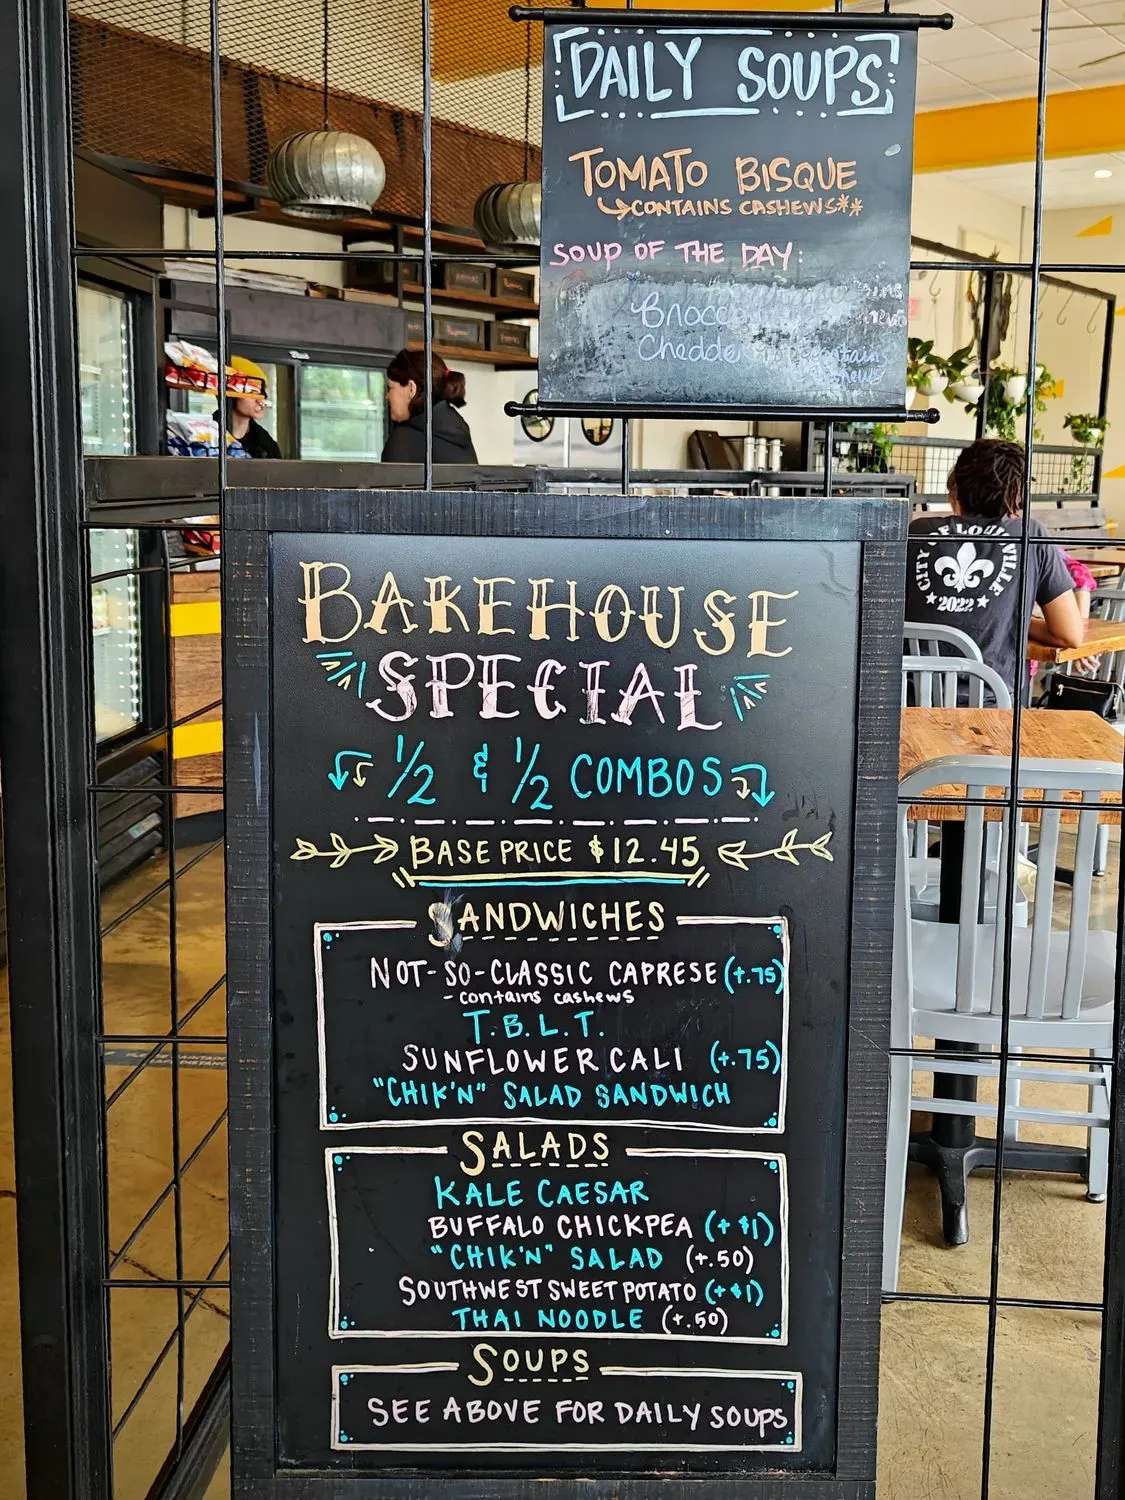 DAILY SOUPS
TOMATO BISQUE
CONTAINS CASHEWS**
SOUP OF THE DAY:
BAKEHOUSE
SPECIAL
1/2 & 1/2 COMBOS
BASE PRICE $12.45
SANDWICHES
NOT-SO-CLASSIC CAPRESE (+.75)
- contains cashews
T.B.L.T.
SUNFLOWER CALI (+.75)
"CHIK'N" SALAD SANDWICH
SALADS
KALE CAESAR
BUFFALO CHICKPEA (+ $1)
"CHIK'N" SALAD (+.50)
SOUTHWEST SWEET POTATO (+ $1)
THAI NOODLE (+.50)
SOUPS
SEE ABOVE FOR DAILY SOUPS
CITY OF LOUISVILLE
2022